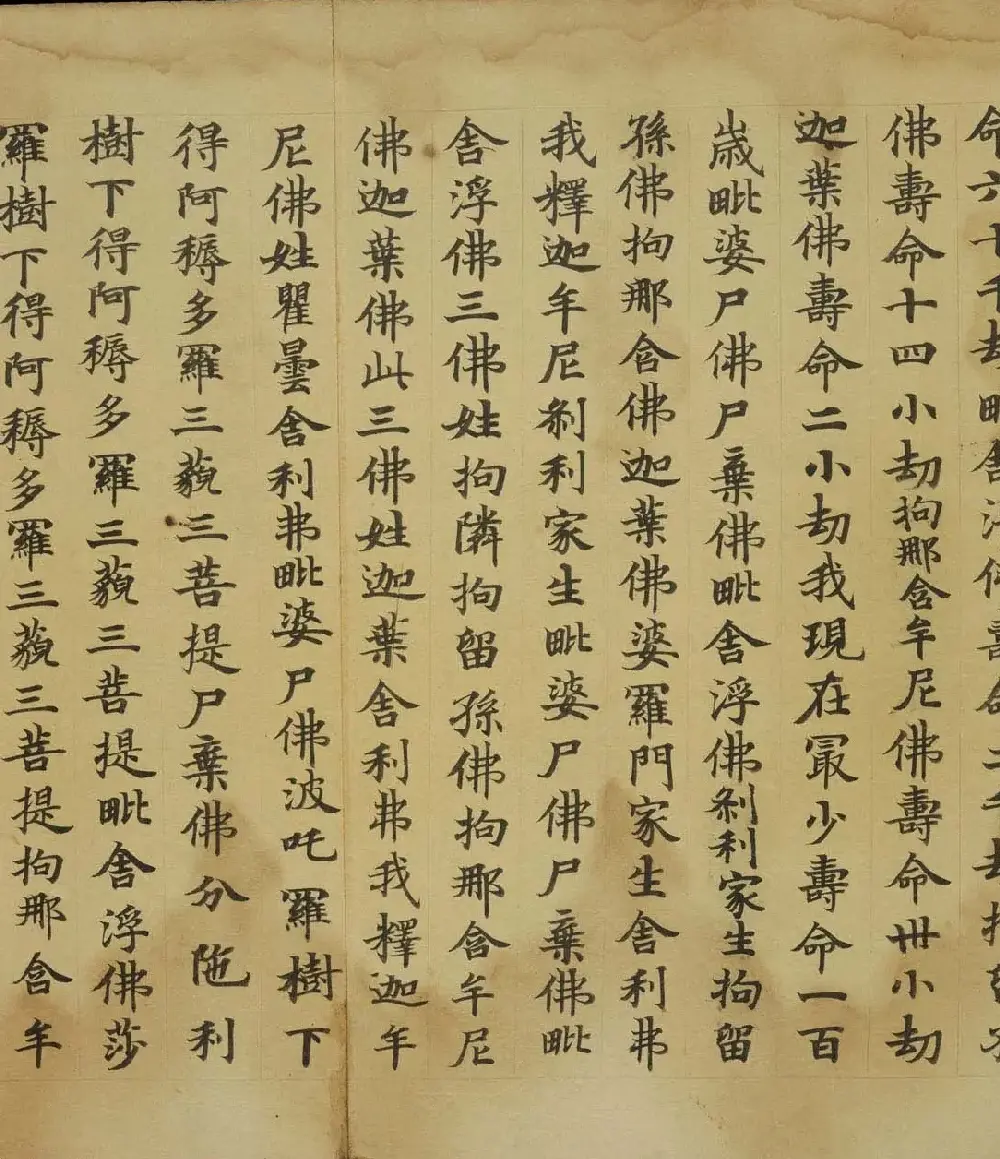 命六十千劫毗舍浮佛壽命二千劫拘留孫
佛壽命十四小劫拘那含牟尼佛壽命卅小劫
迦葉佛壽命二小劫我現在冣少壽命一百
歲毗婆尸佛尸棄佛毗舍浮佛剎利家生拘留
孫佛拘那含佛迦葉佛婆羅門家生舍利弗
我釋迦牟尼剎利家生毗婆尸佛尸棄佛毗
舍浮佛三佛姓拘隣拘留孫佛拘那含牟尼
佛迦葉佛此三佛姓迦葉舍利弗我釋迦牟
尼佛姓瞿曇舍利弗毗婆尸佛波吒羅樹下
得阿耨多羅三藐三菩提尸棄佛分陁利
樹下得阿耨多羅三藐三菩提毗舍浮佛莎
羅樹下得阿耨多羅三藐三菩提拘那含牟